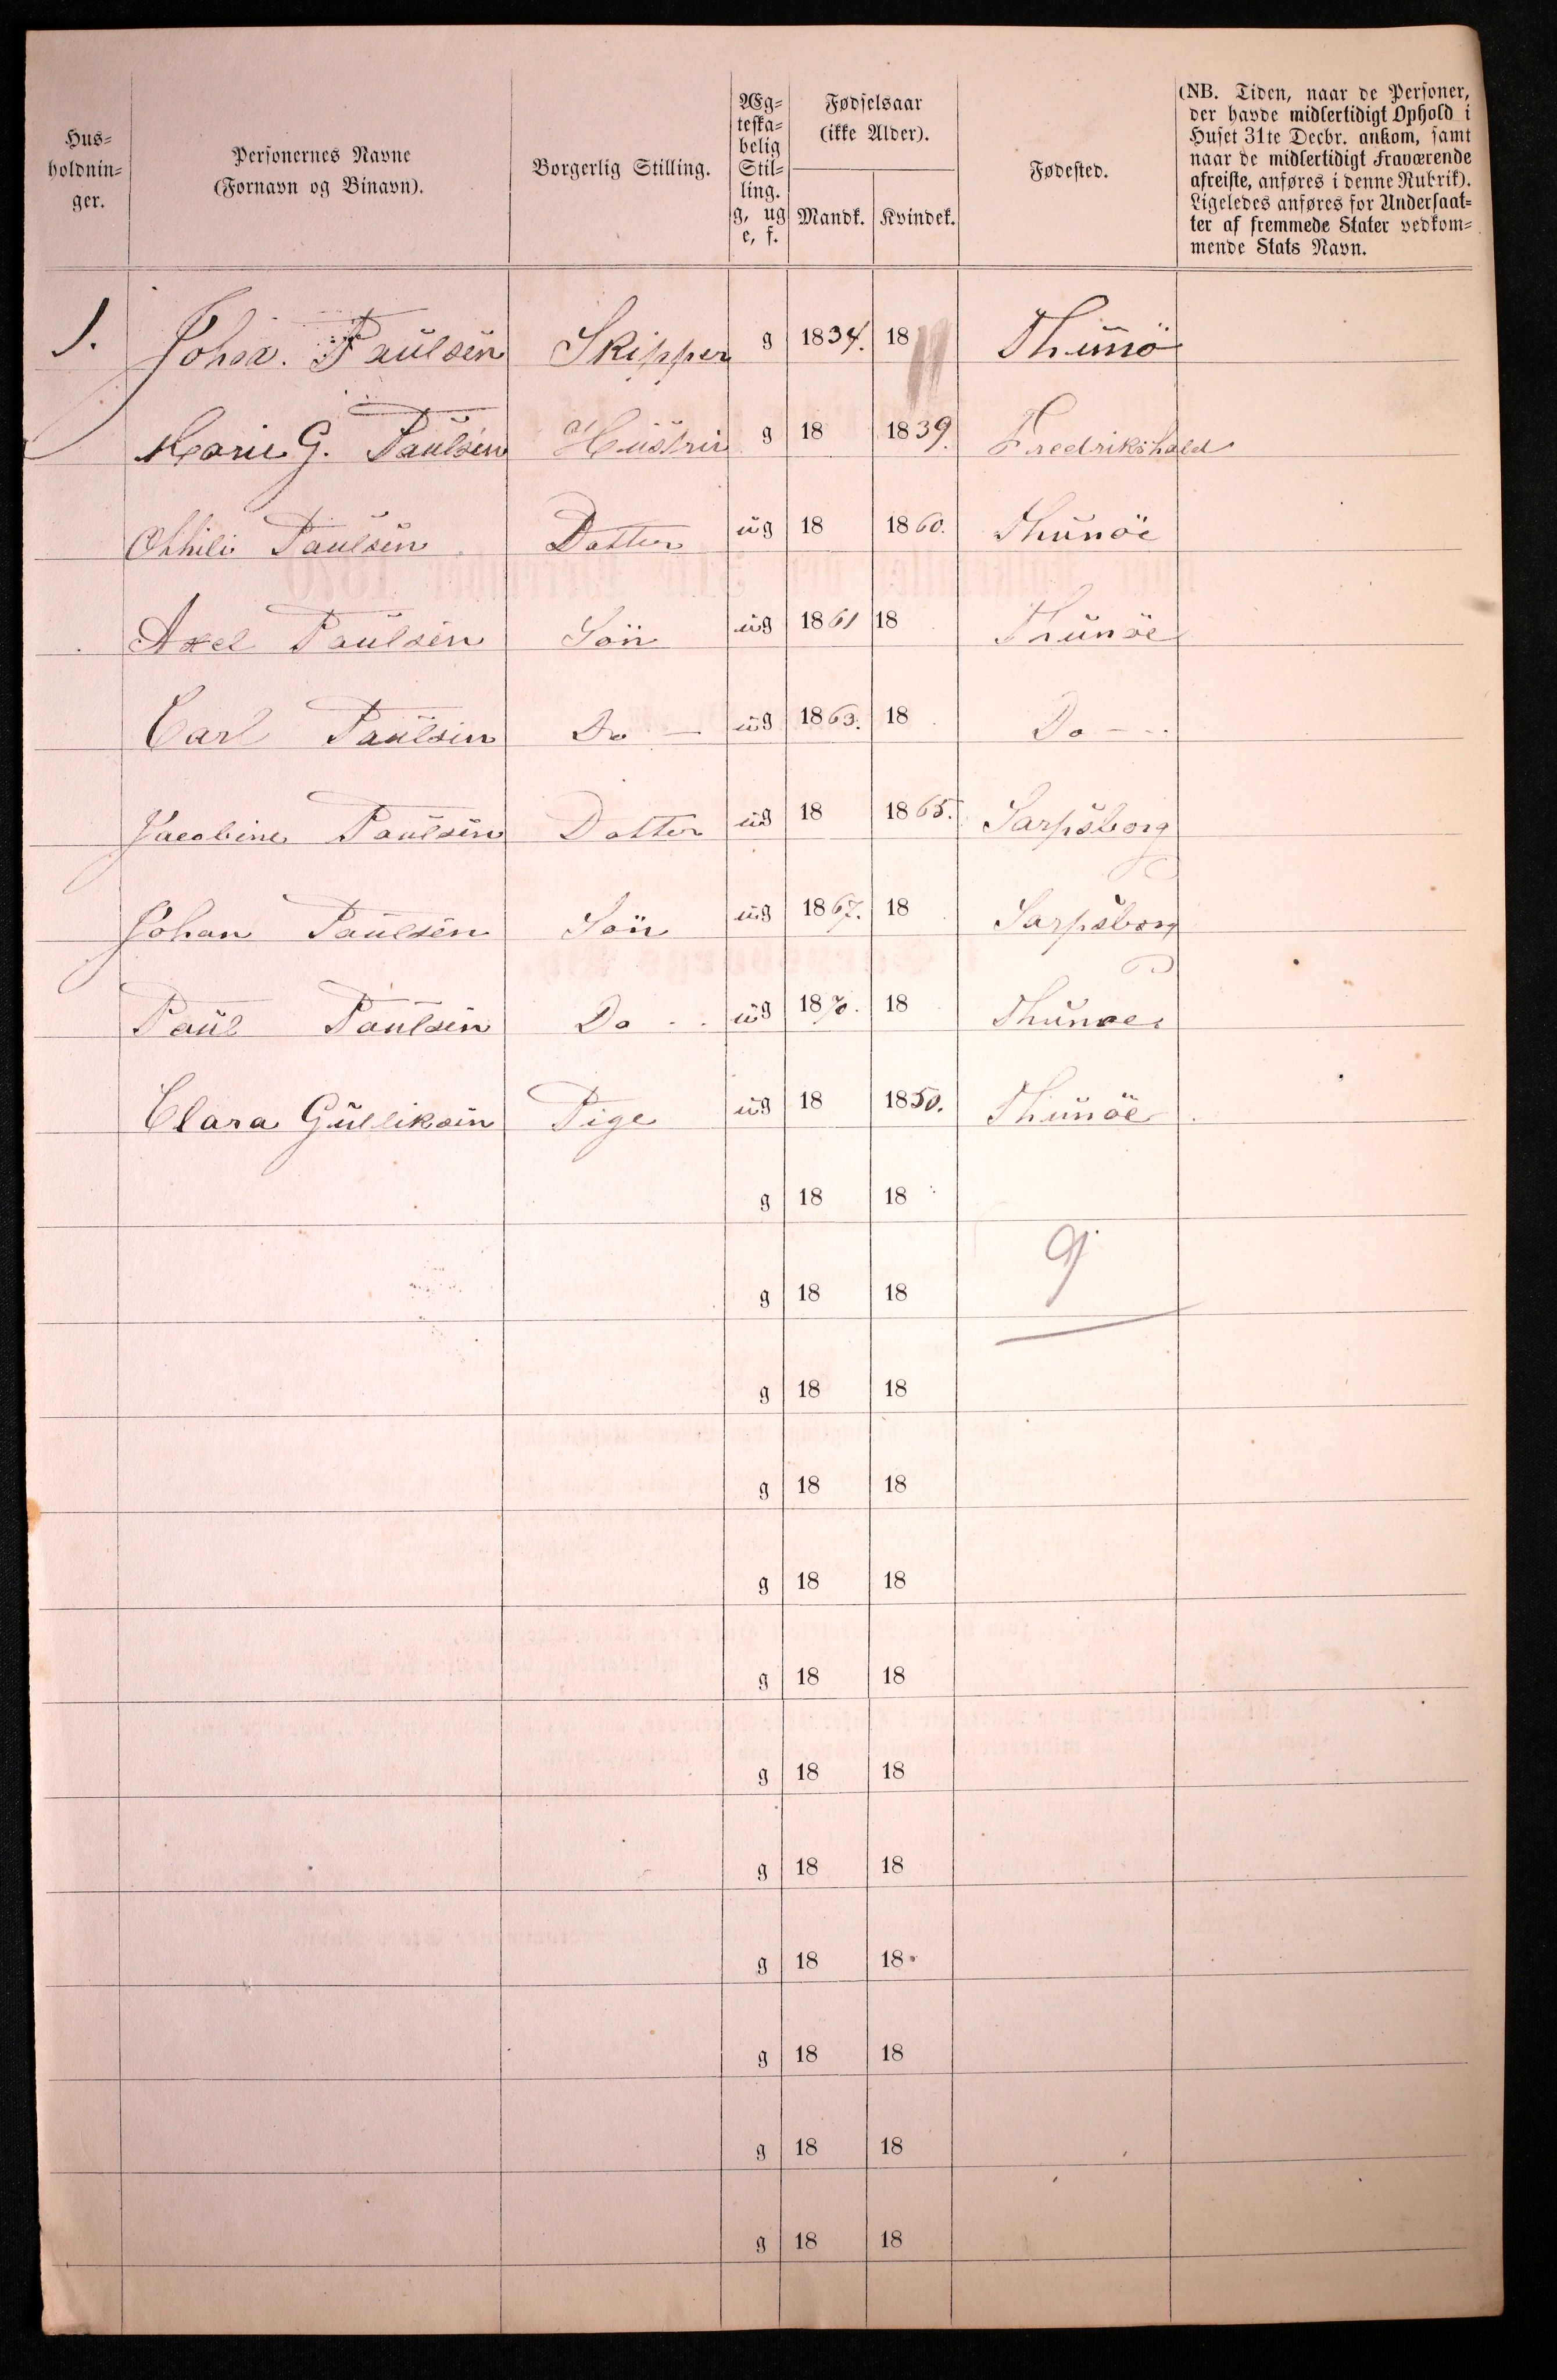 Hus=
holdnin=
ger.
Personernes Navne
(Fornavn og Binavn).
Borgerlig Stilling.
Æg=
teska=
belig
Stil=
ling.
g, ug
e, f.
Fødselsaar
(ikke Alder).
Mandk. Kvindek.
Fødested.
(NB. Tiden, naar de Personer,
der havde midlertidigt Ophold i
Huset 31te Decbr. ankom, samt
naar de midlertidigt Fraværende
afreiste, anføres i denne Rubrik).
Ligeledes anføres for Undersaat=
ter af fremmede Stater vedkom=
mende Stats Navn.
1. Johan. Paulsen Skipper g 1834. 18 Thunö
Marie G. Paulsen Hustru g 18 1839. Fredrikshald
Othili Paulsen Datter ug 18 1860. Thunöe
Axel Paulsen Sön ug 1861 18 Thunöe
Carl Paulsen Do — ug 1863. 18 Do - -
Jacobine Paulsen Datter ug 18 1865. Sarpsborg
Johan Paulsen Sön ug 1867. 18 Sarpsborg
Paul Paulsen Do - - ug 1870. 18 Thunoe
Clara Gulliksen Pige ug 18 1850. Thunöe
g 18 18
g 18 18 9
g 18 18
g 18 18
g 18 18
g 18 18
g 18 18
g 18 18
g 18 18
g 18 18
g 18 18
g 18 18